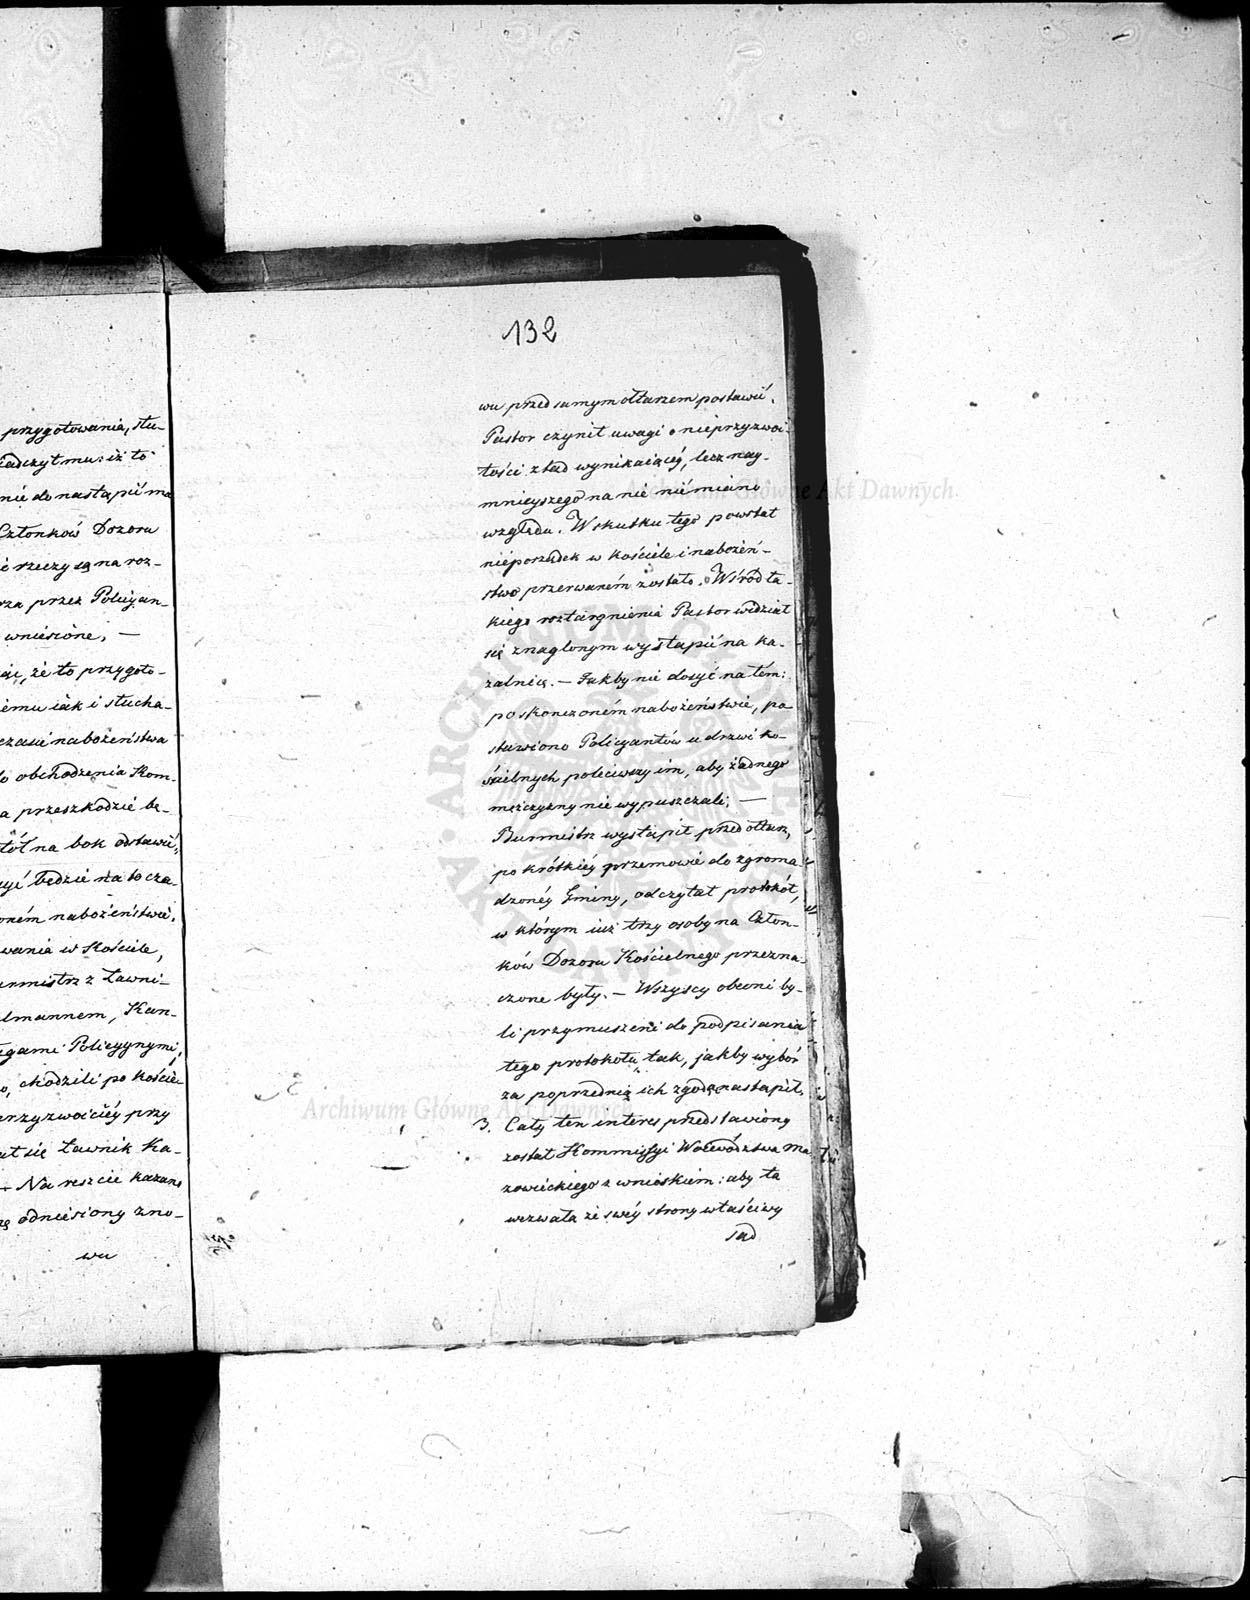 przygotowania, stu-
iadczył mu: iż to
nie do nastąpić ma
Członków Dozoru
é rzeczy są na roz-
rza przez Policyan-
wniesione, —
że to przygoto-
iemu iak i słucha-
czasie nabożeństwa
do obchodzenia Kom-
a przeszkodzić bę-
stół na bok odstawić,
będzie na to cza-
oném nabożeństwie.
wania w Kościele,
urmistrz z Ławni-
lmannem, Kan-
ęgami Policyynymi,
o, chodzili po kościele
erzyzwoiciéy przy
ał się Ławnik Ka-
— Na reszcie kazano
odniesiony zno-
wu
132
wu przed samym ołtarzem postawić.
Pastor czynił uwagi o nieprzyzwoi-
tości ztąd wynikaiącéy, lecz nay-
mnieyszego na nie niémiano
względu. W skutku tego powstał
nieporządek w kościele i nabożeń-
stwo przerwaném zostało. Wśród ta-
kiego roztargnienia Pastor widział
się znaglonym wystąpić na ka-
zalnicę. — Jakby nie dosyć na tém:
po skonczoném nabożeństwie, po-
stawiono Policyantów u drzwi ko-
ścielnych poleciwszy im, aby żadnego
męzczyzny nie wypuszczali; —
Burmistrz wystąpił przed ołtarz,
po krótkiéy przemowie do zgroma-
dzonéy Gminy, odczytał protokół,
w którym iuż trzy osoby na Człon-
ków Dozoru Kościelnego przezna-
czone były. — Wszyscy obecni by-
li przymuszeni do podpisania
tego protokołu tak, jakby wybór
za poprzednią ich zgodą nastąpił.
3. Cały ten interes przedstawiony
został Kommissyi Woiewództwa Ma-
zowieckiego z wnioskiem: aby ta
wezwała ze swéy strony właściwy
sąd
Archiwum Główne Akt Dawnych
Archiwum Główne Akt Dawnych
ARCHIWUM GŁÓWNE AKT DAWNYCH